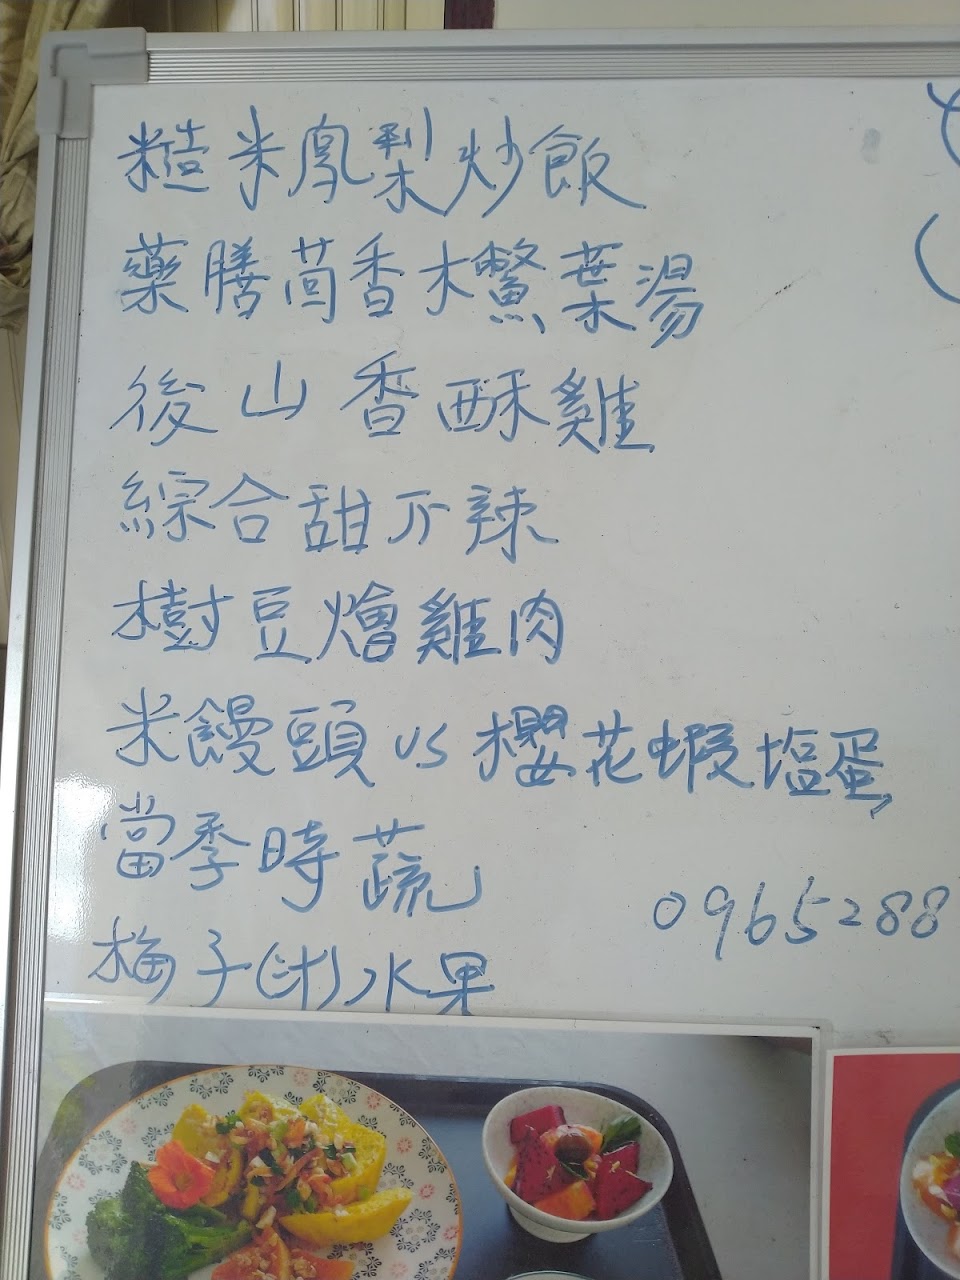 糙米鳳梨炒飯
藥膳茴香木鱉葉湯
後山香酥雞
綜合甜不辣
樹豆燴雞肉
米饅頭 vs 櫻花蝦塩蛋
當季時蔬
0965288
梅子(汁)水果